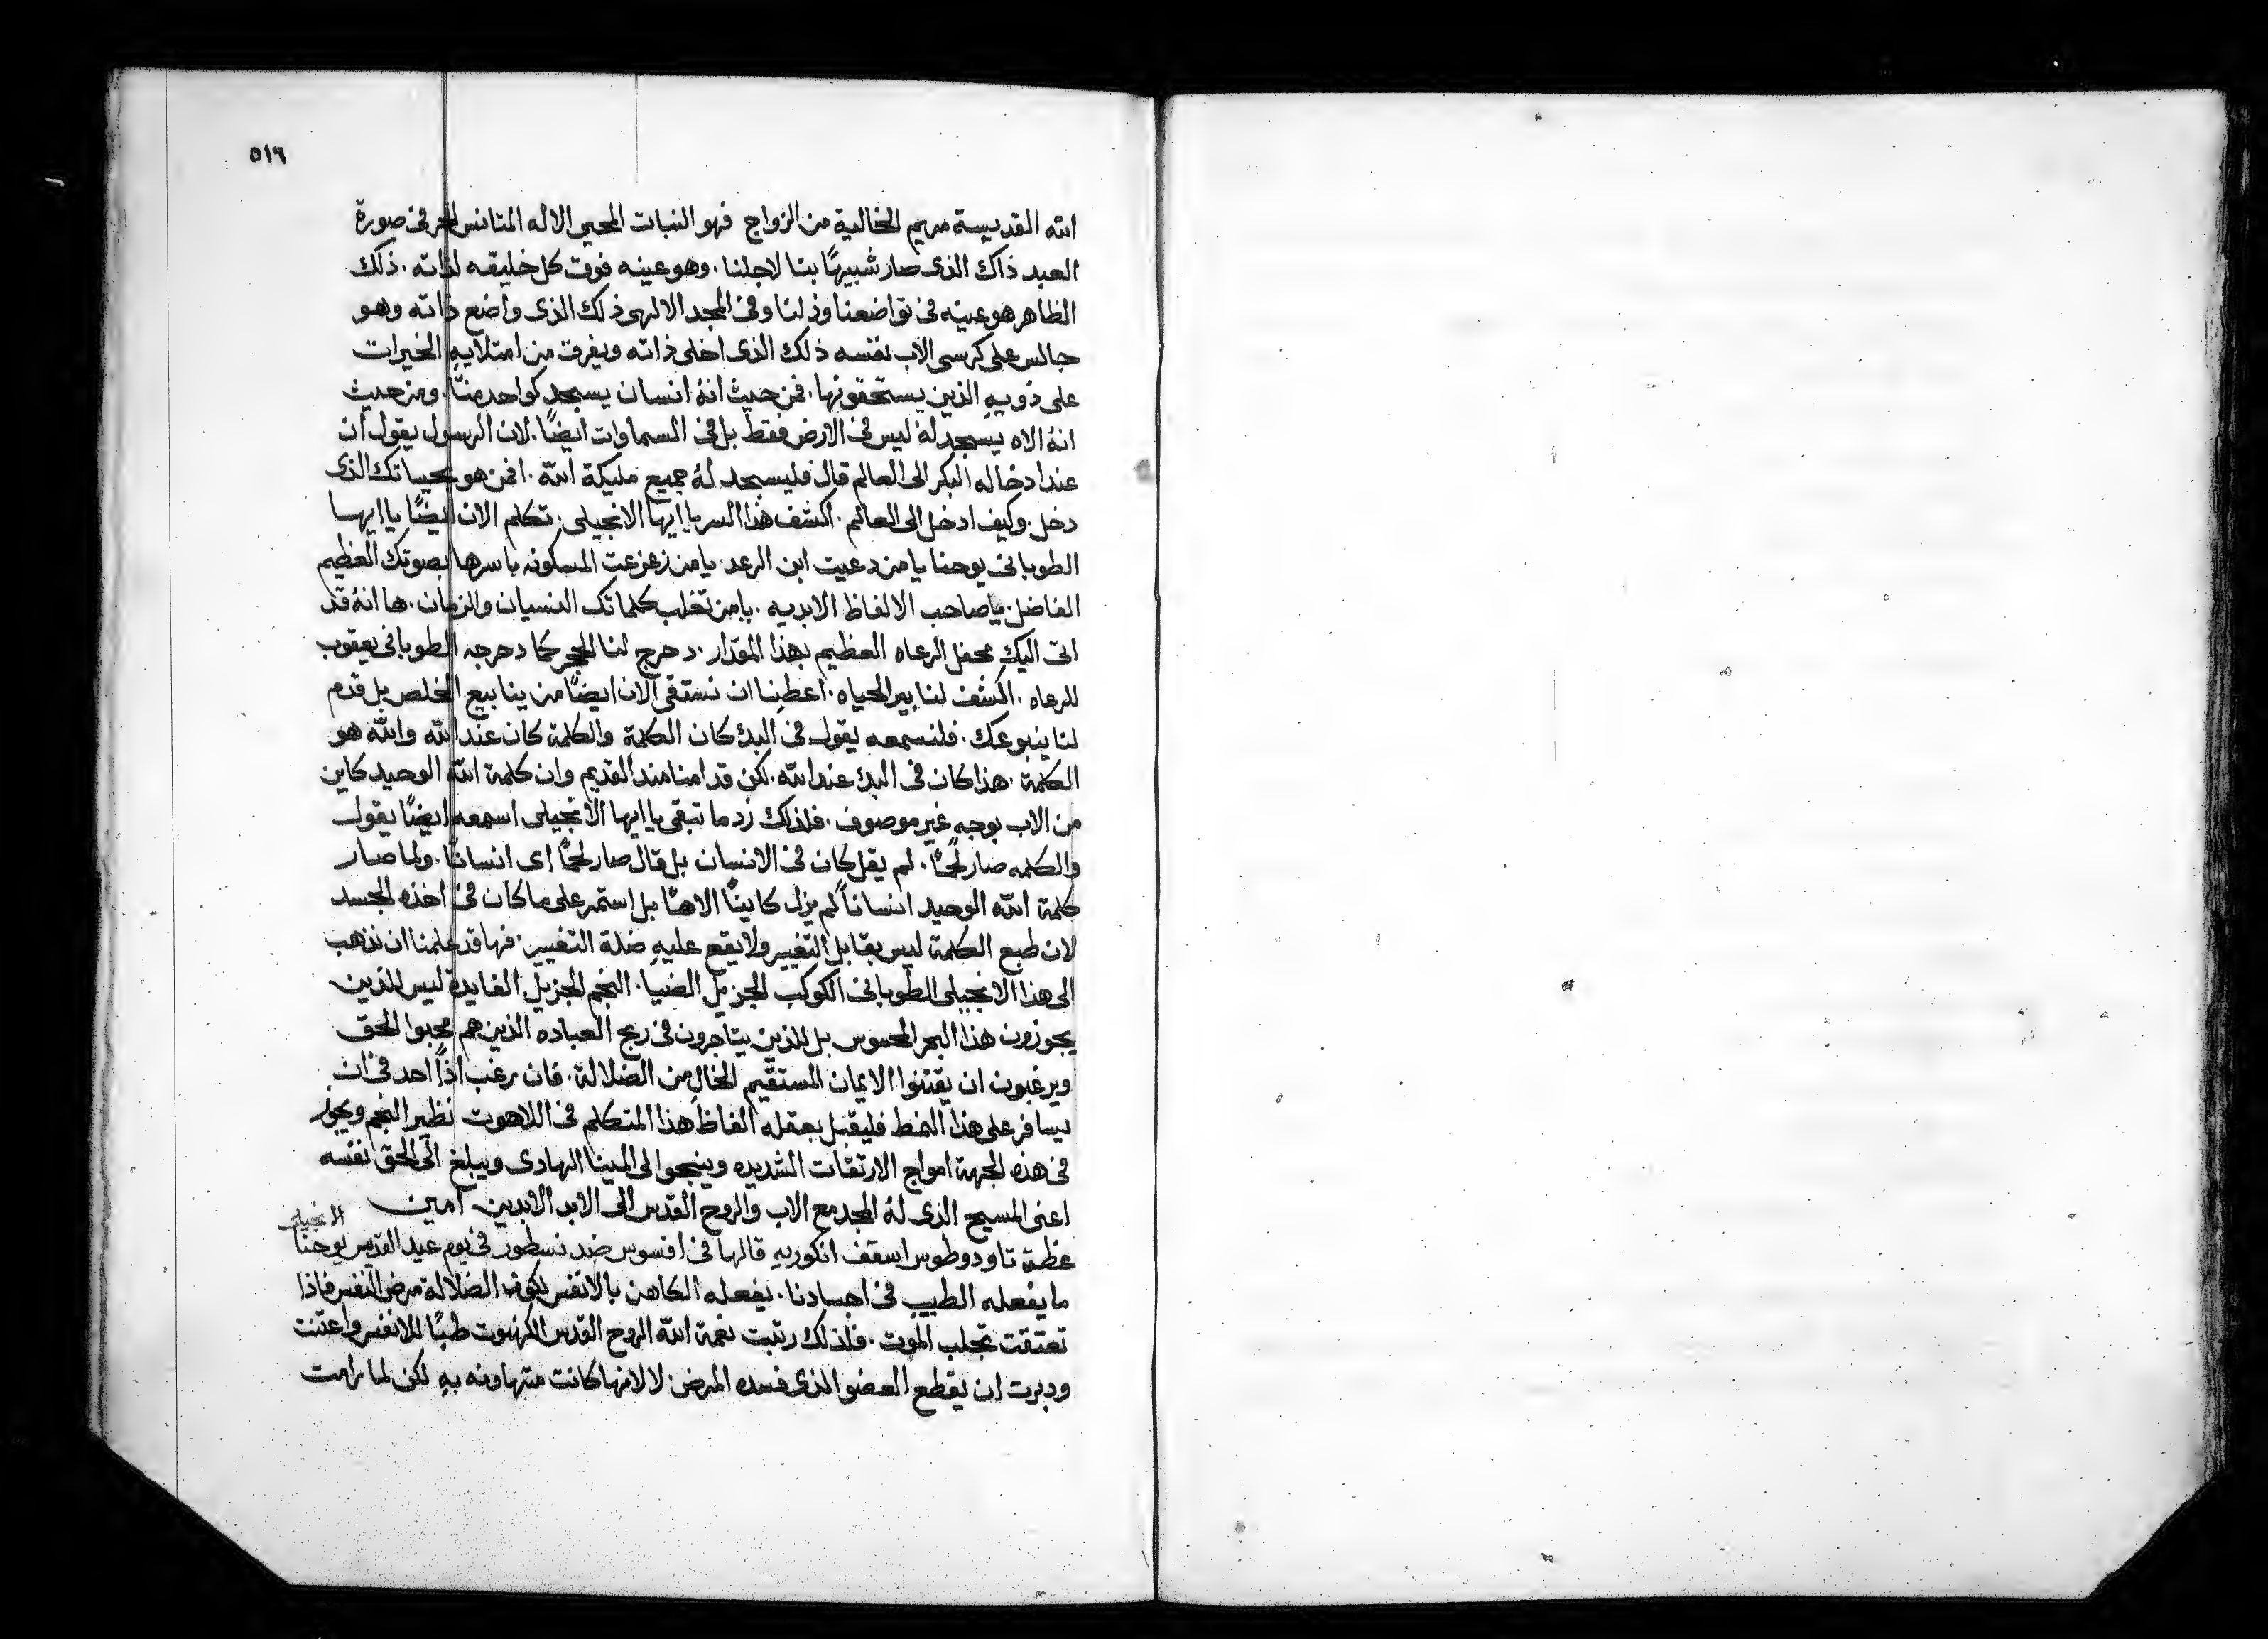 ٥١٦
الله القديسة مريم الخالية من الزواج فهو النبات المحيى الاله المتانس الحر فى صورة
العبد ذاك الذى صار شبيهًا بنا لاجلنا . وهو عينه فوق كل خليقه لذاته . ذلك
الظاهر هو عينه فى تواضعنا وذلنا وفى المجد الالهى ذلك الذى واضع ذاته وهو
جالس على كرسى الاب نفسه ذلك الذى اخلى ذاته ويفرق من امتلايهِ الخيرات
على ذويهِ الذين يستحقونها . فمن حيث انهُ انسان يسجد كواحد منّا . ومن حيث
انهُ الاه يسجد لهُ ليس فى الارض فقط بل فى السماوات ايضًا . لان الرسول يقول ان
عند ادخاله البكر الى العالم قال فليسجد لهُ جميع مليكة الله . افمن هو الذى
دخل . وكيف ادخل الى العالم . اكشف هذا السر يا ايها الانجيلى . تكلم الان ايضًا يا ايها
الطوبانى يوحنا يا من دعيت ابن الرعد . يا من زعزعت المسكونه باسرها بصوتك العظيم
الفاضل . يا صاحب الالفاظ الابديه . يا من تغلب كلماتك النسيان والزمان . ها انهُ قد
اتى اليك محفل الرعاه العظيم بهذا المقدار . دحرج لنا الحجر كما دحرجه الطوبانى يعقوب
للرعاه . اكشف لنا بير الحياه . اعطنا ان نستقى الان ايضًا من ينابيع المخلص بل قدم
لنا ينبوعك . فلنسمعه يقول فى البدء كان الكلمة والكلمة كان عند الله والله هو
الكلمة . هذا كان فى البدء عند الله . لكن قد امنا منذ القديم وان كلمة الله الوحيد كاين
من الاب بوجهٍ غير موصوف . فلذلك زد ما تبقى يا ايها الانجيلى اسمعه ايضًا يقول
والكلمه صار لحمًا . لم يقل كان فى الانسان بل قال صار لحمًا اى انسانًا . ولما صار
كلمة الله الوحيد انسانًا لم يزل كاينًا الاهًا بل استمر على ما كان فى اخذه الجسد
لان طبع الكلمة ليس بقابل التغيير ولا يقع عليهِ ضلة التغيير . فها قد علمنا ان نذهب
الى هذا الانجيلى الطوبانى الكوكب الجزيل الضيا . النجم الجزيل الفايدة ليس للذين
يجوزون هذا البحر المحسوس بل للذين يتاجرون فى ربح العباده الذين هم محبوا الحق
ويرغبون ان يقتنوا الايمان المستقيم الخالِ من الضلالة . فان رغب اذًا احد فى ان
يسافر على هذا النمط فليقبل بعقله الفاظ هذا المتكلم فى اللاهوت نظير النجم ويجوز
فى هذه الجهة امواج الارتقات الشديده وينجوا الى المينا الهادى ويبلغ الى الحق نفسه
اعنى المسيح الذى لهُ المجد مع الاب والروح القدس الى الابد الابدين امين
عظة تاودوطوس اسقف انكوريهِ قالها فى افسوس ضد نسطور فى يوم عيد القديس يوحنا الانجيلى
ما يفعله الطبيب فى اجسادنا . يفعله الكاهن بالانفس لكون الضلالة مرض النفس فاذا
تعتقت تجلب الموت . فلذلك رتبت نعمة الله الروح القدس الكهنوت طبًا للانفس واعتنت
ودبرت ان يقطع العضو الذى فسده المرض . لا لانها كانت متهاونه بهِ لكن لما رامت